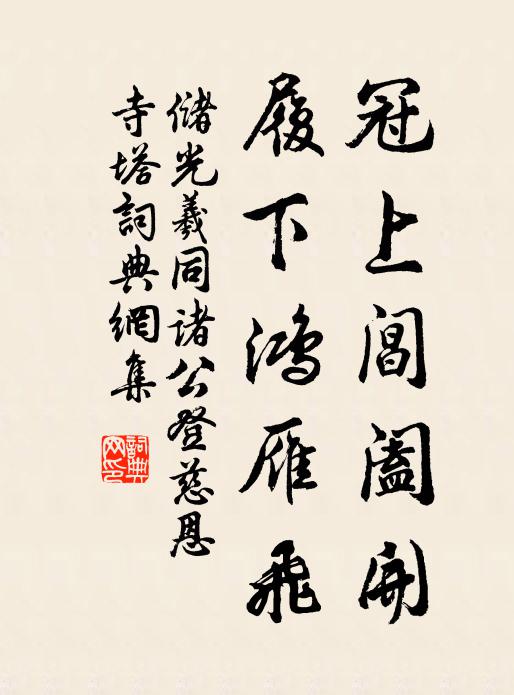 冠上閶闔開
履下鴻雁飛
儲光羲同諸公登慈恩
寺塔詞典網集
詞典
网印